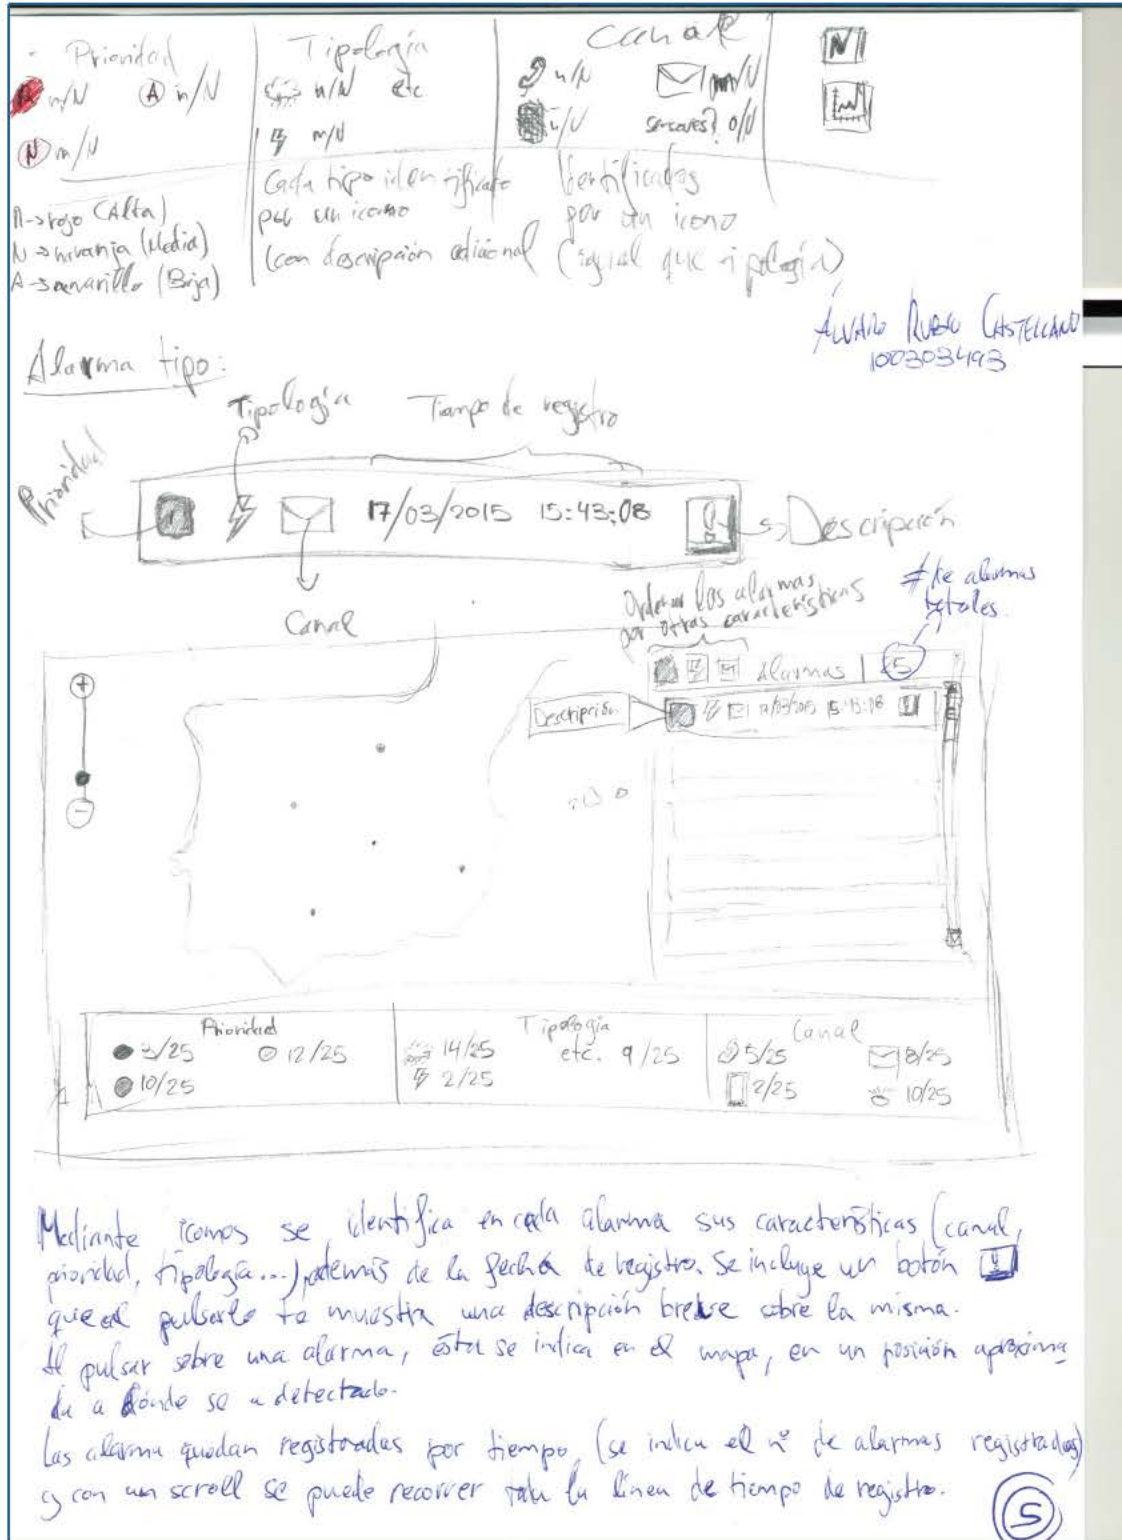 Prioridad
Tipología
Canal
n/N
A n/N
n/N etc
n/N
m/N
N m/N
m/N
n/N
sensores? o/N
Cada tipo identificado
por un icono
(con descripción adicional
Identificados
por un icono
(igual que tipología)
R->rojo (Alta)
N->naranja (Media)
A->amarillo (Baja)
ÁLVARO RUBIO CASTELLANO
100303493
Alarma tipo:
Prioridad
Tipología
Tiempo de registro
17/03/2015 15:43:08
Descripción
Canal
Ordenar las alarmas
por otras características
# de alarmas
totales.
Alarmas 25
Descripción
17/03/2015 15:43:08
Prioridad
Tipología
Canal
3/25
12/25
14/25
etc. 9/25
5/25
8/25
10/25
2/25
2/25
10/25
Mediante iconos se identifica en cada alarma sus características (canal,
prioridad, tipología...) además de la fecha de registro. Se incluye un botón !
que al pulsarlo te muestra una descripción breve sobre la misma.
Al pulsar sobre una alarma, ésta se indica en el mapa, en un posición aproxima
da a dónde se a detectado.
Las alarma quedan registradas por tiempo, (se indica el nº de alarmas registradas)
y con un scroll se puede recorrer toda la línea de tiempo de registro.
5